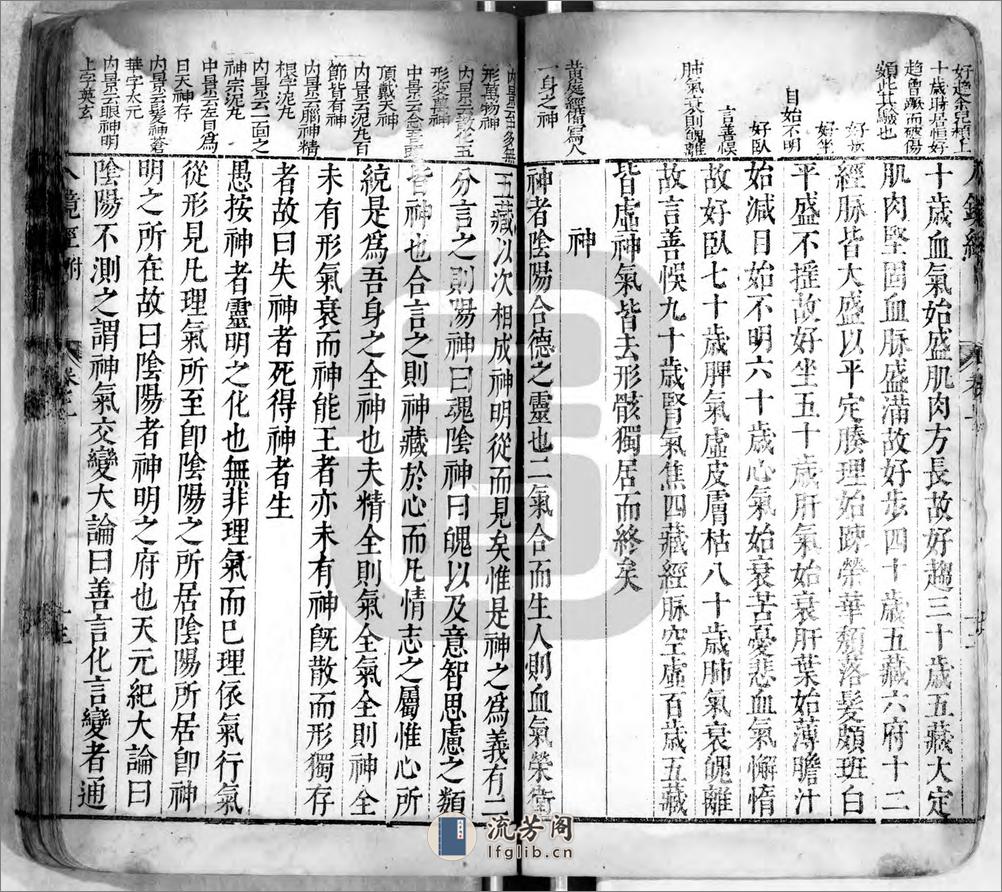 好趨余兒頂上
十歲時居恒好
趨曾蹶而破傷
頞此其驗也
好步
好坐
目始不明
好臥
言善悮
肺氣衰則魄離
黃庭經備寫人
一身之神
十歲血氣始盛肌肉方長故好趨三十歲五藏大定
肌肉堅固血脉盛滿故好步四十歲五藏六府十二
經脉皆大盛以平定腠理始踈榮華頹落髮頗班白
平盛不摇故好坐五十歲肝氣始衰肝葉始薄膽汁
始減目始不明六十歲心氣始衰苦憂悲血氣懈惰
故好臥七十歲脾氣虛皮膚枯八十歲肺氣衰魄離
故言善悮九十歲腎氣焦四藏經脉空虛百歲五藏
皆虛神氣皆去形骸獨居而終矣
神
神者陰陽合德之靈也二氣合而生人則血氣榮衛
形萬物神
形變萬神
頂戴天神
内景云泥丸百
節皆有神
内景云腦神精
根字泥丸
内景云一面之
神宗泥丸
中景云左目為
日天神存
内景云髮神蒼
華字太元
内景云眼神明
上字英玄
五藏以次相成神明從而見矣惟是神之爲義有二
分言之則陽神曰魂陰神曰魄以及意智思慮之類
皆神也合言之則神藏於心而凡情志之屬惟心所
統是爲吾身之全神也夫精全則氣全氣全則神全
未有形氣衰而神能王者亦未有神旣散而形獨存
者故曰失神者死得神者生
愚按神者靈明之化也無非理氣而已理依氣行氣
從形見凡理氣所至卽陰陽之所居陰陽所居卽神
明之所在故曰陰陽者神明之府也天元紀大論曰
陰陽不測之謂神氣交變大論曰善言化言變者通
流芳阁
lfglib.cn